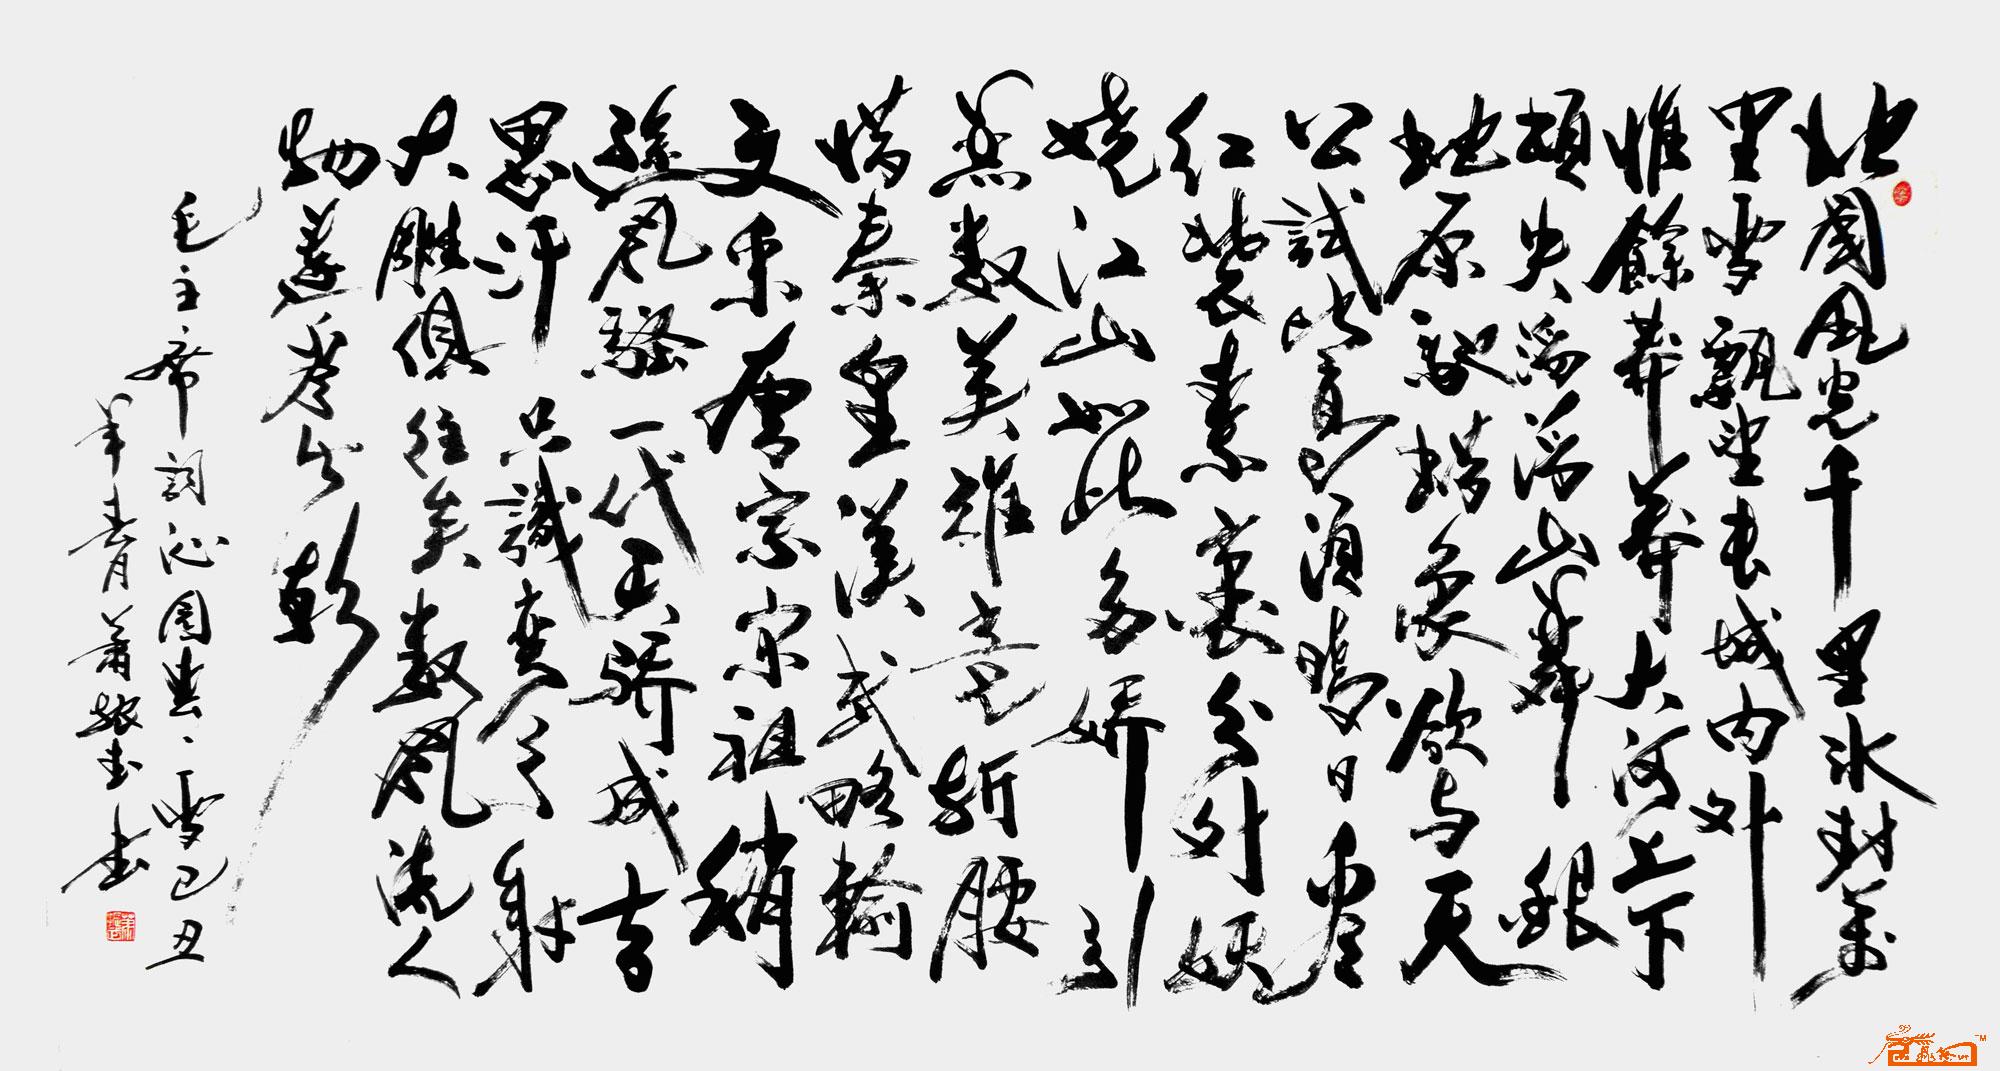 北國風光千里冰封萬
里雪飄望長城内外
惟餘莽莽大河上下
頓失滔滔山舞銀
虵原馳蜡象欲与天
公試比高須晴日看
红裝素裹分外妖
嬈江山如此多嬌引
無数英雄竞折腰
惜秦皇漢武略輸
文采唐宗宋祖稍
遜風騷一代天骄成吉
思汗只識彎弓射
大雕俱往矣數風流人
物還看今朝
毛主席詞沁園春、雪己丑
年春月蕭振書